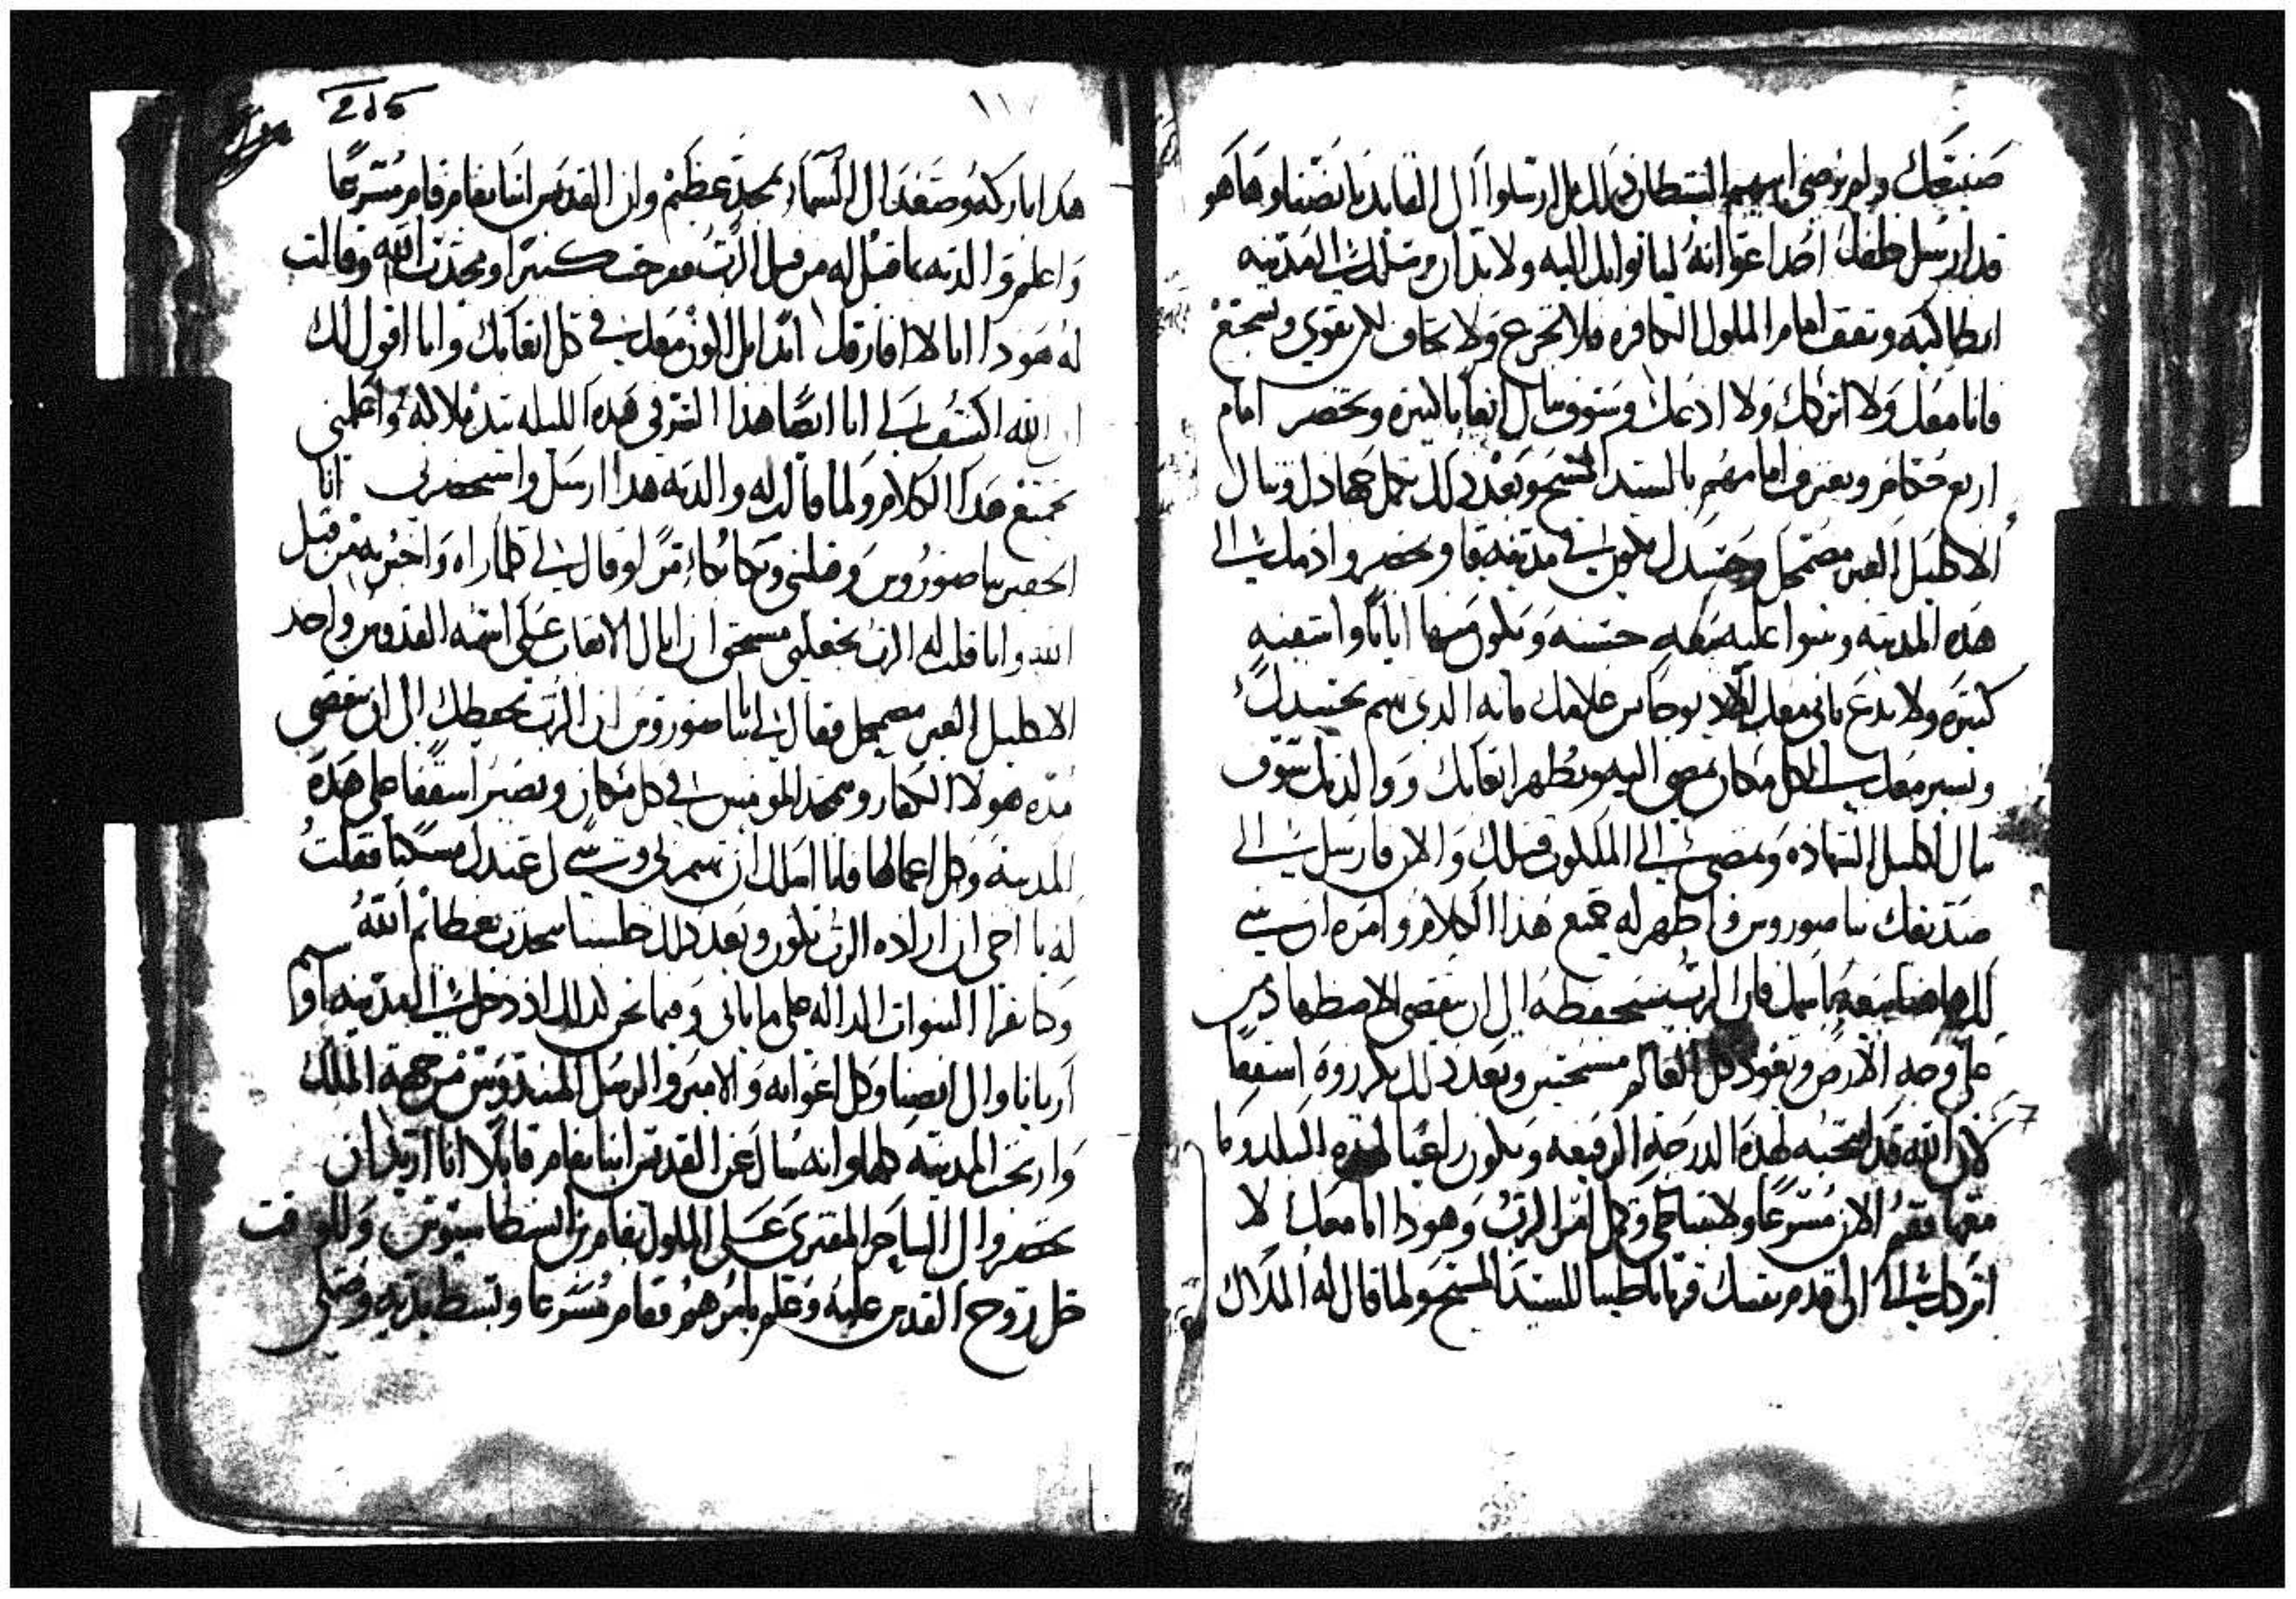 صنيعك ولم يرضى ابيهم الشيطان بذلك بل ارسلوا الى القايد يانصنا وها هو
قد ارسل خلفك احد اعوانه لياتوا بك اليه ولا بد ان يرسلك الى المدينه
انطاكيه وتقف امام الملوك الكافره فلا تجزع ولا تخاف بل تقوى وتشجع
فانا معك ولا اتركك ولا ادعك وسوف تنال اتعابا كثيره وتحضر امام
اربع حكام وتعترف امامهم بالسيد المسيح وبعد ذلك تكمل جهادك وتنال
الاكليل الغير مضمحل وجسدك يكون في مدينه قا ويحضر واذ ملك الى
هذه المدينه ويبنوا عليه بيعه حسنه ويكون منها اياتا واشفيه
كثيره ولا تدع ياتي معك الا يوحانس غلامك فانه الذي يهتم بجسدك
ونسير معك الى كل مكان تمضي اليه ويظهر اتعابك ووالدتك سوف
تنال اكليل الشهاده وتمضي الى الملكوت قبلك والان فارسل الى
صديقك ساصوروس واظهر له جميع هذا الكلام وامره ان يبني
لك هاهنا بيعه باسمك فان الرب سيحفظه الى ان ينقضي الاضطهاد من
على وجه الارض ويعود كل العالم مسيحيين وبعد ذلك يكرزوه اسقفا
لان الله قد انتخبه لهذه الدرجه الرفيعه ويكون راعيا لهذه البلد وكا
معها فقم الان مسرعا ولا تتباطى وكمل امر الرب وهوذا انا معك لا
اتركك الى ان تقدم نفسك قربانا طيبا للسيد المسيح ولما قال له الملاك
١١٧
215
هذا باركه وصعد الى السماء بمجد عظيم وان القديس ابنا بغام قام مسرعا
واعلم والدته بما قيل له من قبل الرب ففرحت كثيرا ومجدت الله وقالت
له هوذا انا لا افارقك ابدا بل اكون معك في كل اتعابك وانا اقول لك
ان الله اكشف لي انا ايضا هذا السر في هذه الليله بيد ملاكه واعلمني
بجميع هذا الكلام ولما قالت له والدته هذا ارسل واستحضرني انا
الحقير ساصوروس وقبلني وبكا بكاء مرا وقال لي كلما راه واخبر به من قبل
الله وانا قلت له الرب يجعلني مستحق ان انال الاتعاب على اسمه القدوس واخد
الاكليل الغير مضمحل فقال لي يا ساصوروس ان الرب يحفظك الى ان تنقضي
مده هولا الكفار وتمجد المومنين في كل مكان وتصير اسقفا على هذه
المدينه وكل اعمالها فانا اسالك ان تهتم بي وتبني لي عندك مسكنا فقلت
له يا اخي ان اراده الرب تكون وبعد ذلك جلسنا نتحدث بعظايم الله
وكنا نقرا النبوات الداله على ما ياتي وفيما نحن كذلك اذ دخل الى المدينه
اريانا والى انصنا وكل اعوانه والامير والرسل المندوبين من جهة الملك
وارتجت المدينه كلها وانه سال عن القديس ابنا بغام قايلا انا اريد ان
تحضروا لي الساحر المفتري على الملوك بغام بن ... وللوقت
حل روح القدس عليه وعلم بامرهم فقام مسرعا وبسط يديه وصلى